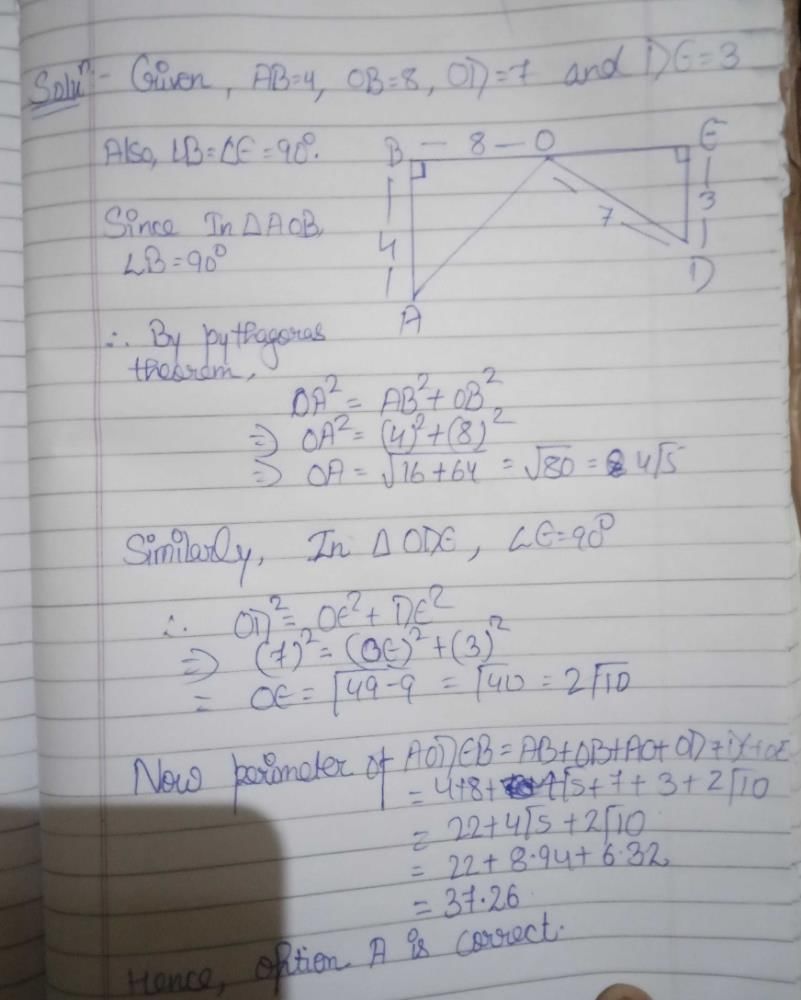 Soluⁿ:- Given, AB=4, OB=8, OD=7 and DE=3
Also, ∠B=∠E=90°.
B - 8 - O E
Since In △AOB,
∠B=90°
4
7
3
D
A
∴ By pythagoras
theorem,
OA² = AB²+OB²
⇒ OA² = (4)²+(8)²
⇒ OA = √16+64 = √80 = 4√5
Similarly, In △ODE, ∠E=90°
∴ OD² = OE²+DE²
⇒ (7)² = (OE)²+(3)²
= OE = √49-9 = √40 = 2√10
Now perimeter of AODEB = AB+OB+AO+OD+DE+OE
= 4+8+4√5+7+3+2√10
= 22+4√5+2√10
= 22+8.94+6.32
= 37.26
Hence, option A is correct.